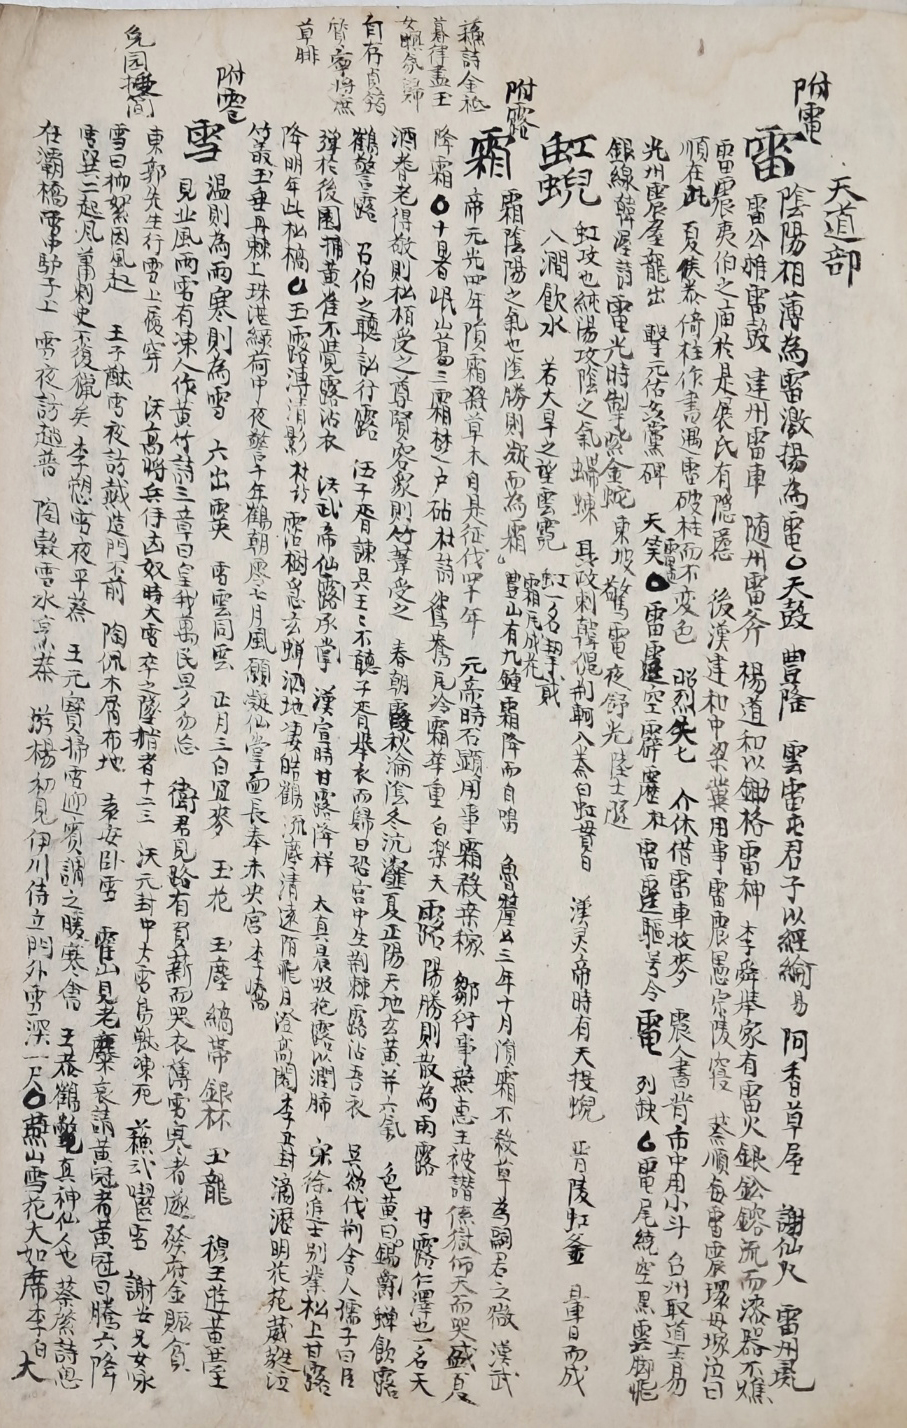 天道部
附電
雷 陰陽相薄為雷激揚為電 天鼓 豐隆 雲雷屯君子以經綸易 阿香草屋 謝仙火 雷州
雷公推雷鼓 建州雷車 随州雷斧 楊道和以鋤格雷神 李舜舉家有雷火銀鈆鎔流而漆器不燋
雷震夷伯之庙於是展氏有隠慝 後漢建和中梁冀用事雷震憲宗陵寝 蔡順每雷震環母塚泣曰
順在此 夏侯泰倚柱作書遇雷破柱而不変色 昭烈失匕 介休借雷車收麥 震人書背市中用小斗 台州取道士易
光州震屋龍出 擊元佑黨碑 天笑 雷霆空霹靂杜 雷霆驅号令 電 列缺 電尾繞空黒雲脚
銀線韓渥詩 電光時掣紫金蛇東坡 驚電夜舒光陸士
虹蜺 虹攻也純陽攻陰之氣 蝃蝀 聶政刺韓傀 荆軻入秦白虹貫日 漢灵帝時有天投蜺 晋陵虹釜 暈日而成
入澗飲水 若大旱之望雲霓 虹一名挈貳
附露
霜 霜陰陽之氣也陰勝則凝而為霜 霜 豊山有九鍾霜降而自鳴 魯釐公三年十月隕霜不殺草為嗣君之微 漢武
帝元光四年隕霜殺草木自是征伐四十年 元帝時石顯用事霜殺桒稼 鄒衍事燕惠王被譖係獄仰天而哭盛夏
降霜 十月者岷山 三霜楚户砧杜詩 鴛鴦瓦冷霜華重白楽天 露 陽勝則散為雨露 甘露仁澤也一名天
酒 耆老得敬則松栢受之尊賢容衆則竹葦受之 春朝霞秋淪陰冬沆瀣夏正陽天地玄黄并六氣 色黄曰錫爵 蟬飲露
鶴警露 召伯之聴訟行露 伍子胥諫吴王王不聴子胥舉衣而歸曰恐宫中生荆棘露沾吾衣 吴欲伐荆舍人孺子曰臣
弾於後園捕黄雀不覺露沾衣 漢武帝仙露承掌 漢宣時甘露降祥 太真晨吸花露以潤肺 宋徐進士别業松上甘露
降明年此松槁 玉露漙清影杜詩 鶴 清遠 月澄高閣李 封 滴瀝明花苑葳蕤泣
竹叢玉垂丹棘上珠湛緑荷中夜警千年鶴朝零七月風願凝仙掌面長奉未央宫李嶠
蘇詩金袛
暮律盡玉
女瓢氛歸
自存貞筠
管寧將
草腓
附雹
雪 温則為雨寒則為雪 六出霙 雪雲同雲 正月三白宜麥 玉花 玉塵 縞帯銀杯 玉龍 穆王遊黄臺
見北風雨雪有凍人作黄竹詩三章曰皇我萬民旦夕勿忘 衛君見路有負薪而哭衣薄雪寒者遂発府金賑貧
東郭先生行雪上履穿 漢高將兵伐凶奴時大雪卒之墮指者十二三 漢元封中大雪鳥獣凍死 蘇武囓雪 謝安兄女咏
雪曰柳絮因風起 王子猷雪夜訪戴造門不前 陶侃木屑布地 袁安卧雪 霍山見老麋哀請黄冠者黄冠曰騰六降
雪巽二起風蕭刺史不復獵矣 李愬雪夜平蔡 王元寶掃雪迎賓謂之暖寒會 王恭鶴氅真神仙也 蔡 詩思
在灞橋雪中驴子上 雪夜訪趙普 陶穀雪水烹茶 游楊初見伊川侍立門外雪深一尺 燕山雪花大如席李白 大